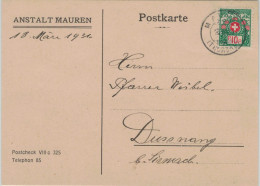 ANSTALT MAUREN
Postkarte
18. März 1931
Herrn
Pfarrer Weibel.
Dussnang
b. Sirnach.
Postcheck VIII c 325
Telephon 65